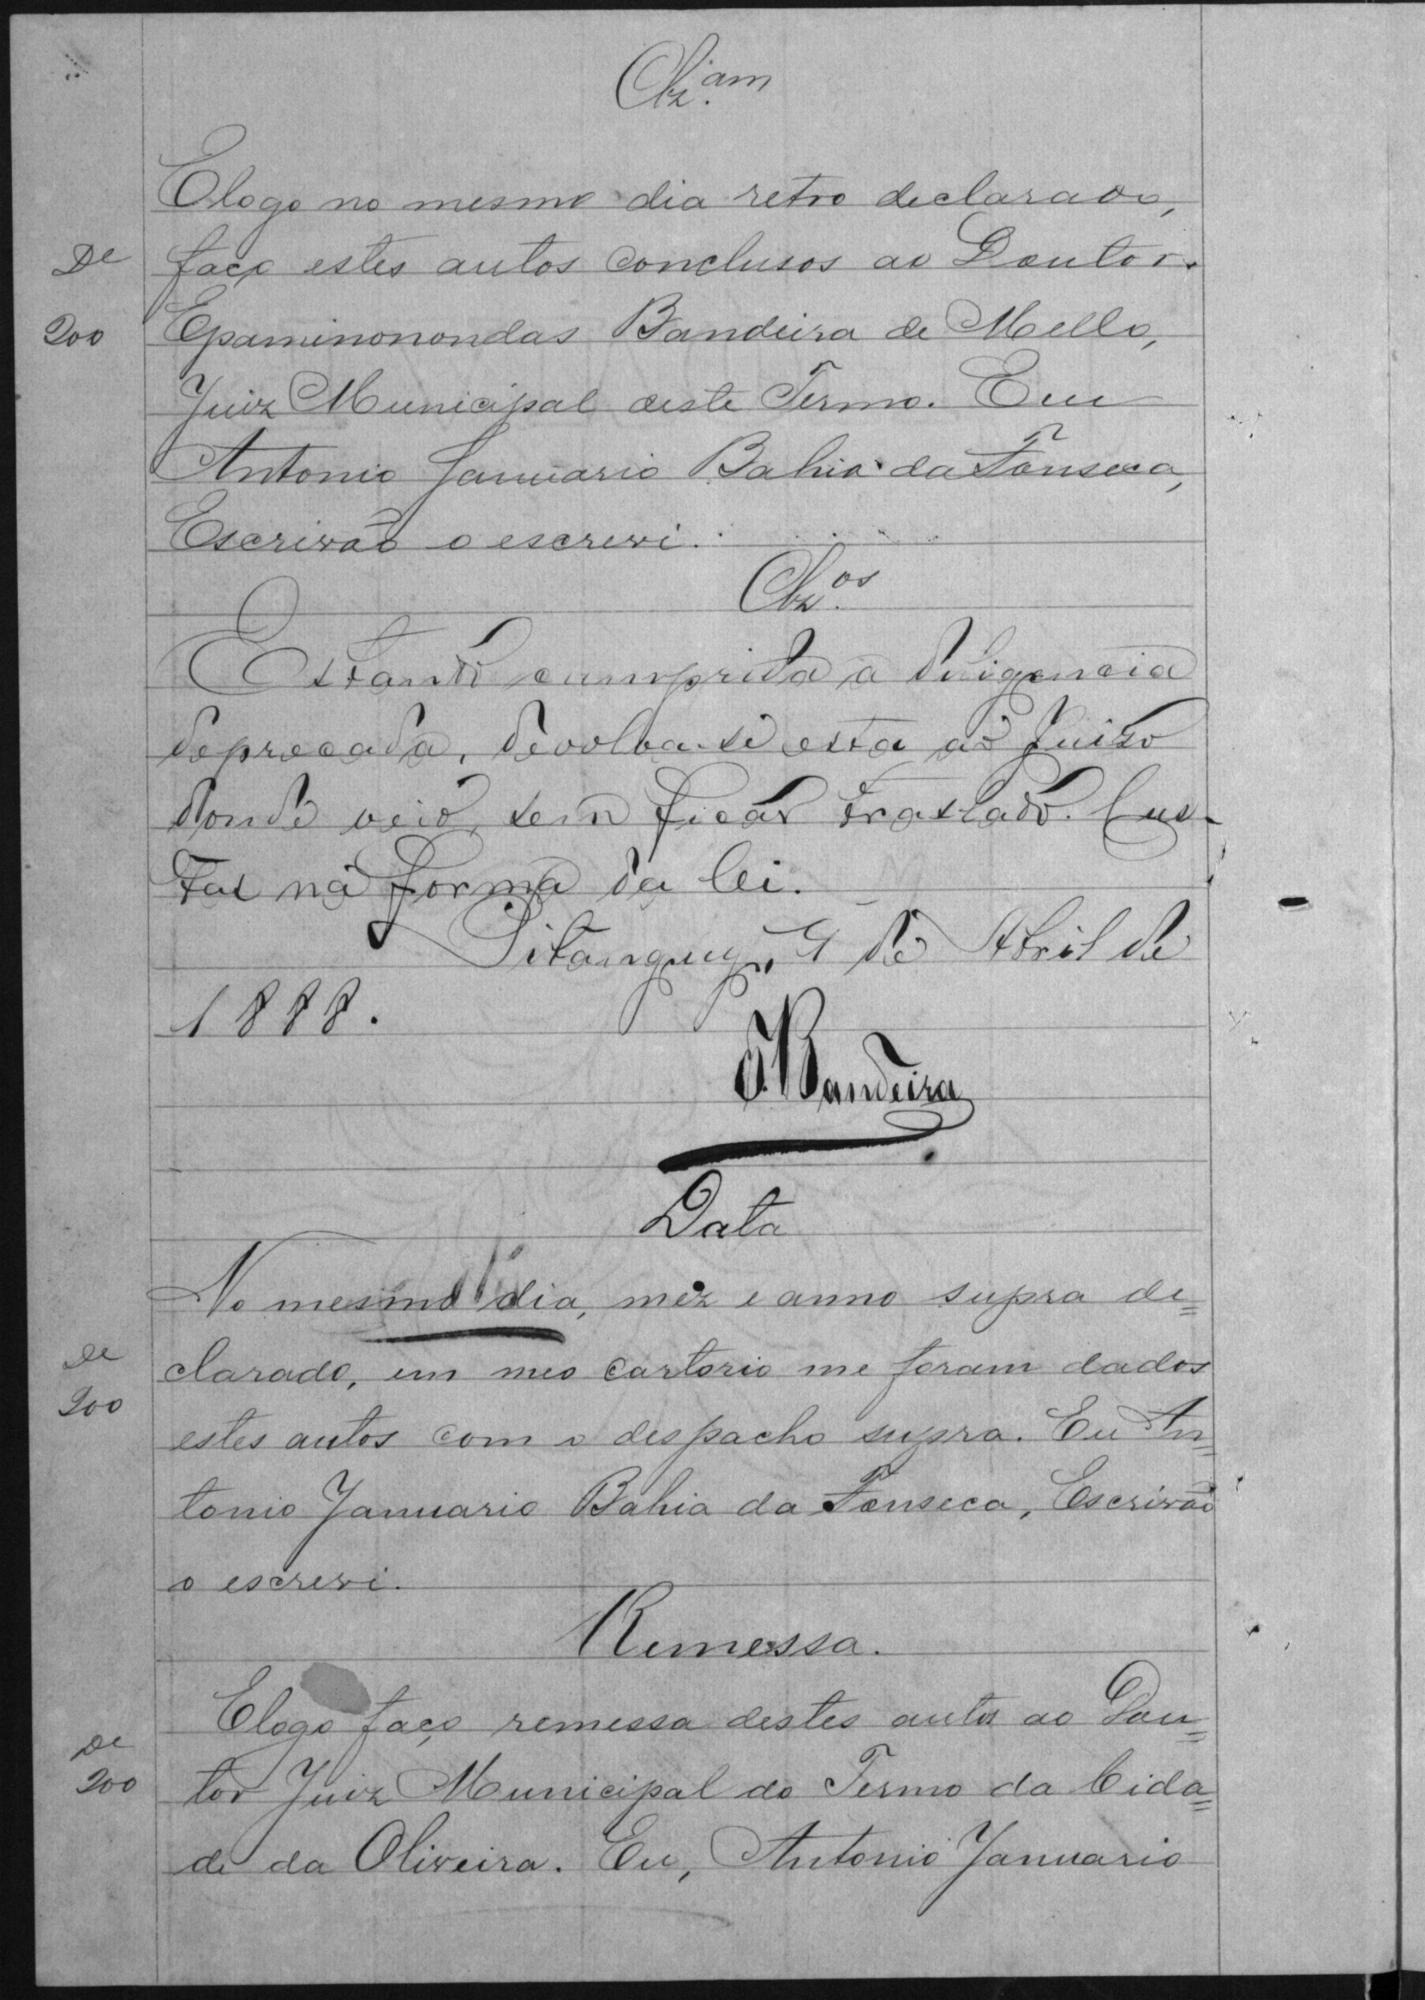 Clz.am
E logo no mesmo dia retro declarado,
De faço estes autos conclusos ao Doutor.
200 Epaminonondas Bandeira de Mello,
Juiz Municipal deste Termo. Eu
Antonio Januario Bahia da Fonseca,
Escrivão o escrevi.
Clz.os
Estando cumprida a diligencia
deprecada, devolva-se esta ao Juizo
donde veio, sem ficar traslado. Cus-
tas na forma da lei.
Pitanguy, 9 de Abril de
1888.
Bandeira
Data
No mesmo dia, mez e anno supra de=
De clarado, em meo cartorio me foram dados
200 estes autos com o despacho supra. Eu An=
tonio Januario Bahia da Fonseca, Escrivão
o escrevi.
Remessa.
E logo faço remessa destes autos ao Dou=
De
200 tor Juiz Municipal do Termo da Cida=
de da Oliveira. Eu, Antonio Januario